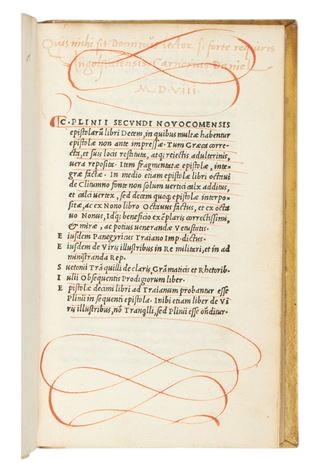 Quis mihi sit Dominus lector si forte requiris
Ingolstatensis Carnerius Daniel
M.D.VIII
C. PLINII SECVNDI NOVOCOMENSIS
epistolarũ libri Decem, in quibus multæ habentur
epistolæ non ante impressæ. Tum Græca corre-
cta, et suis locis restituta, atq; reiectis adulterinis,
uera reposita. Item fragmentatæ epistolæ, inte-
græ factæ. In medio etiam epistolæ libri octaui
de Clitumno fonte non solum uertici calx additus,
et calci uertex, sed decem quoq; epistolæ interpo-
sitæ, ac ex Nono libro Octauus factus, et ex octa
uo Nonus, Idq; beneficio exẽplaris correctissimi,
& miræ, ac potius uenerandæ Vetustatis.
E iusdem Panegyricus Traiano Imp. dictus.
E iusdem de Viris illustribus in Re militari, et in ad
ministranda Rep.
S uetonii Trãquilli de claris Grãmaticis et Rhetorib.
I ulii Obsequentis Prodigiorum liber.
E pistolæ decimi libri ad Traianum probantur esse
Plinii in sequenti epistola. Inibi etiam liber de Vi
ris illustribus, nõ Trãqlli, sed Plinii esse ondítur.